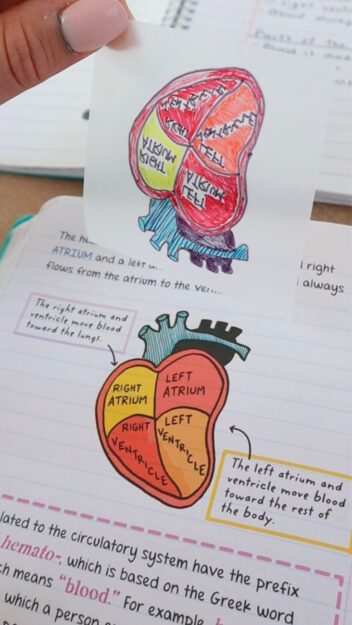 blood always
Parts of the
RIGHT
VENTRICLE
LEFT
VENTRICLE
RIGHT
ATRIUM
LEFT
ATRIUM
The
right
ATRIUM and a left
always
flows from the atrium to the
The right atrium and
ventricle move blood
toward the lungs.
RIGHT
ATRIUM
LEFT
ATRIUM
RIGHT
VENTRICLE
LEFT
VENTRICLE
The left atrium and
ventricle move blood
toward the rest of
the body.
lated to the circulatory system have the prefix
hemato-, which is based on the Greek word
ch means "blood." For example,
which a person